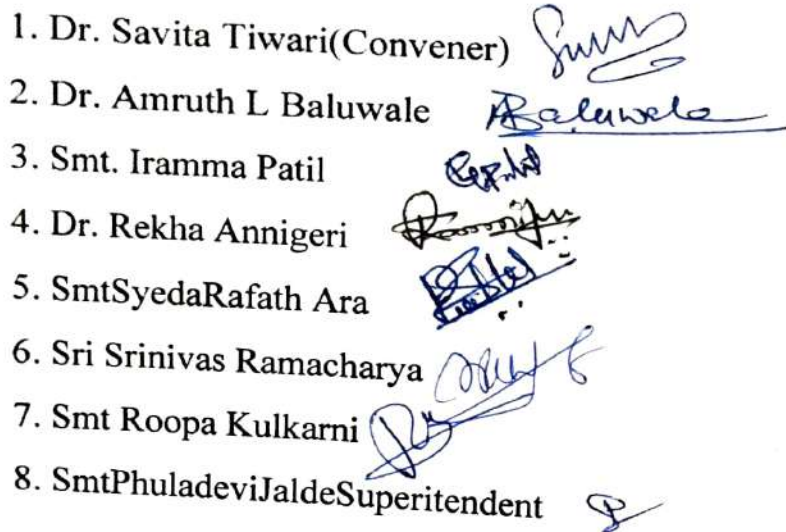 1. Dr. Savita Tiwari(Convener)
2. Dr. Amruth L Baluwale ABaluwale
3. Smt. Iramma Patil
4. Dr. Rekha Annigeri
5. SmtSyedaRafath Ara
6. Sri Srinivas Ramacharya
7. Smt Roopa Kulkarni
8. SmtPhuladeviJaldeSuperitendent